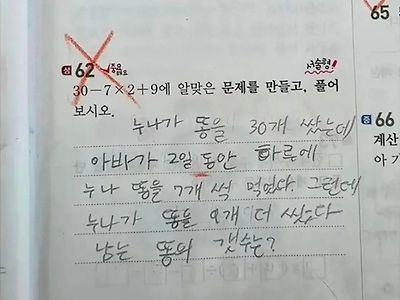 65
상 62 중요
서술형!
30-7×2+9에 알맞은 문제를 만들고, 풀어
보시오.
누나가 똥을 30개 쌌는데
아빠가 2일 동안 하루에
누나 똥을 7개 씩 먹었다. 그런데
누나가 똥을 9개 더 쌌다
남는 똥의 갯수는?
중 66
계산
아 기